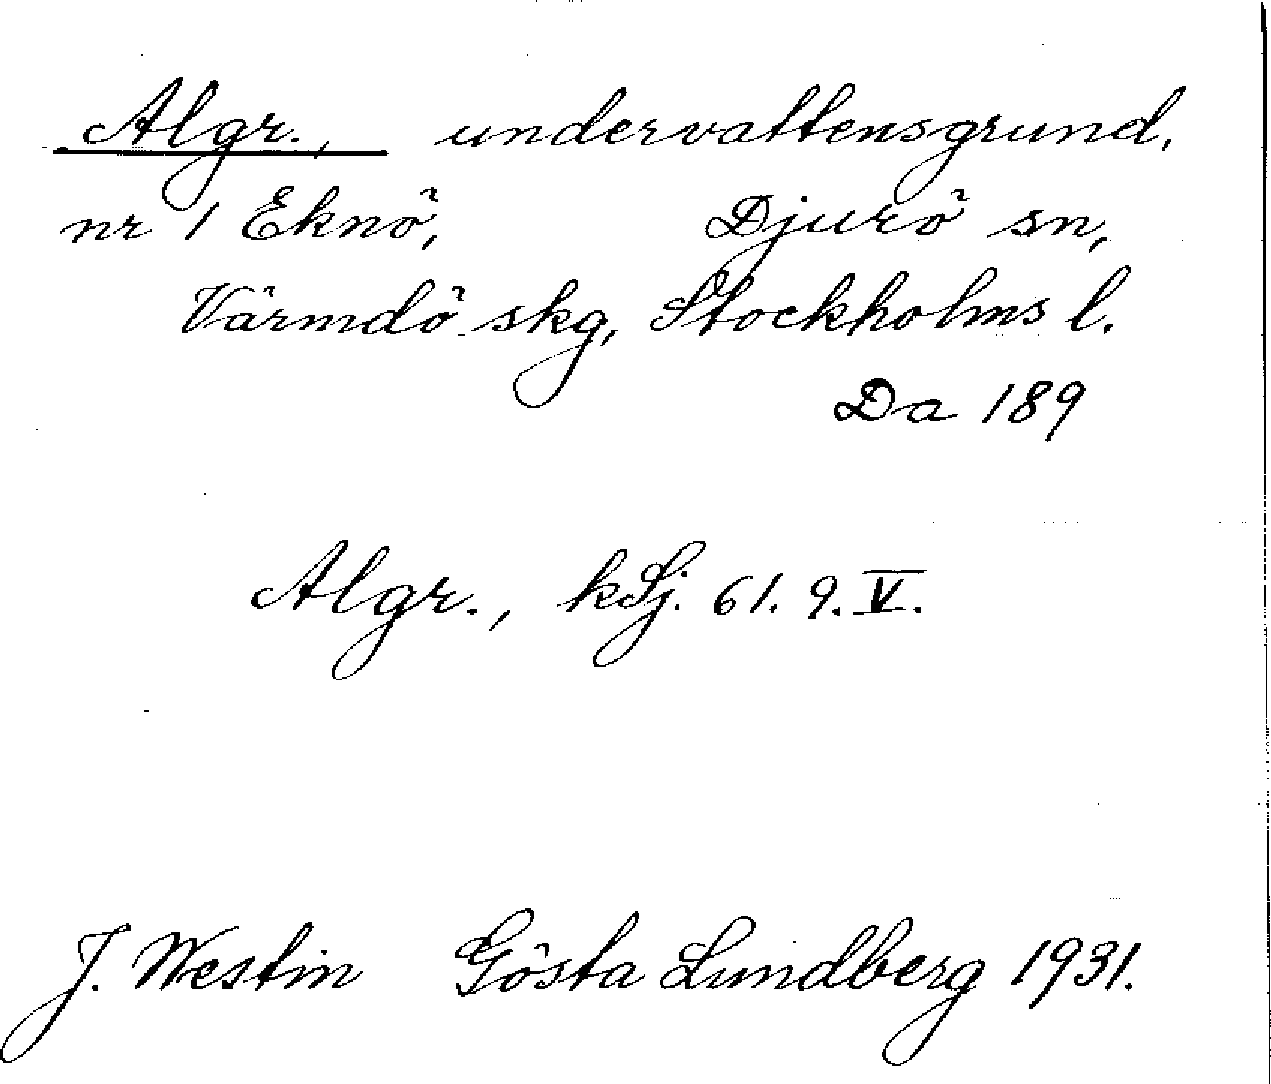 Algr., undervattensgrund.
nr 1 Eknö, Djurö sn,
Värmdö skg, Stockholms l.
Da 189
Algr., kSj. 61. 9. V.
J. Westin Gösta Lundberg 1931.